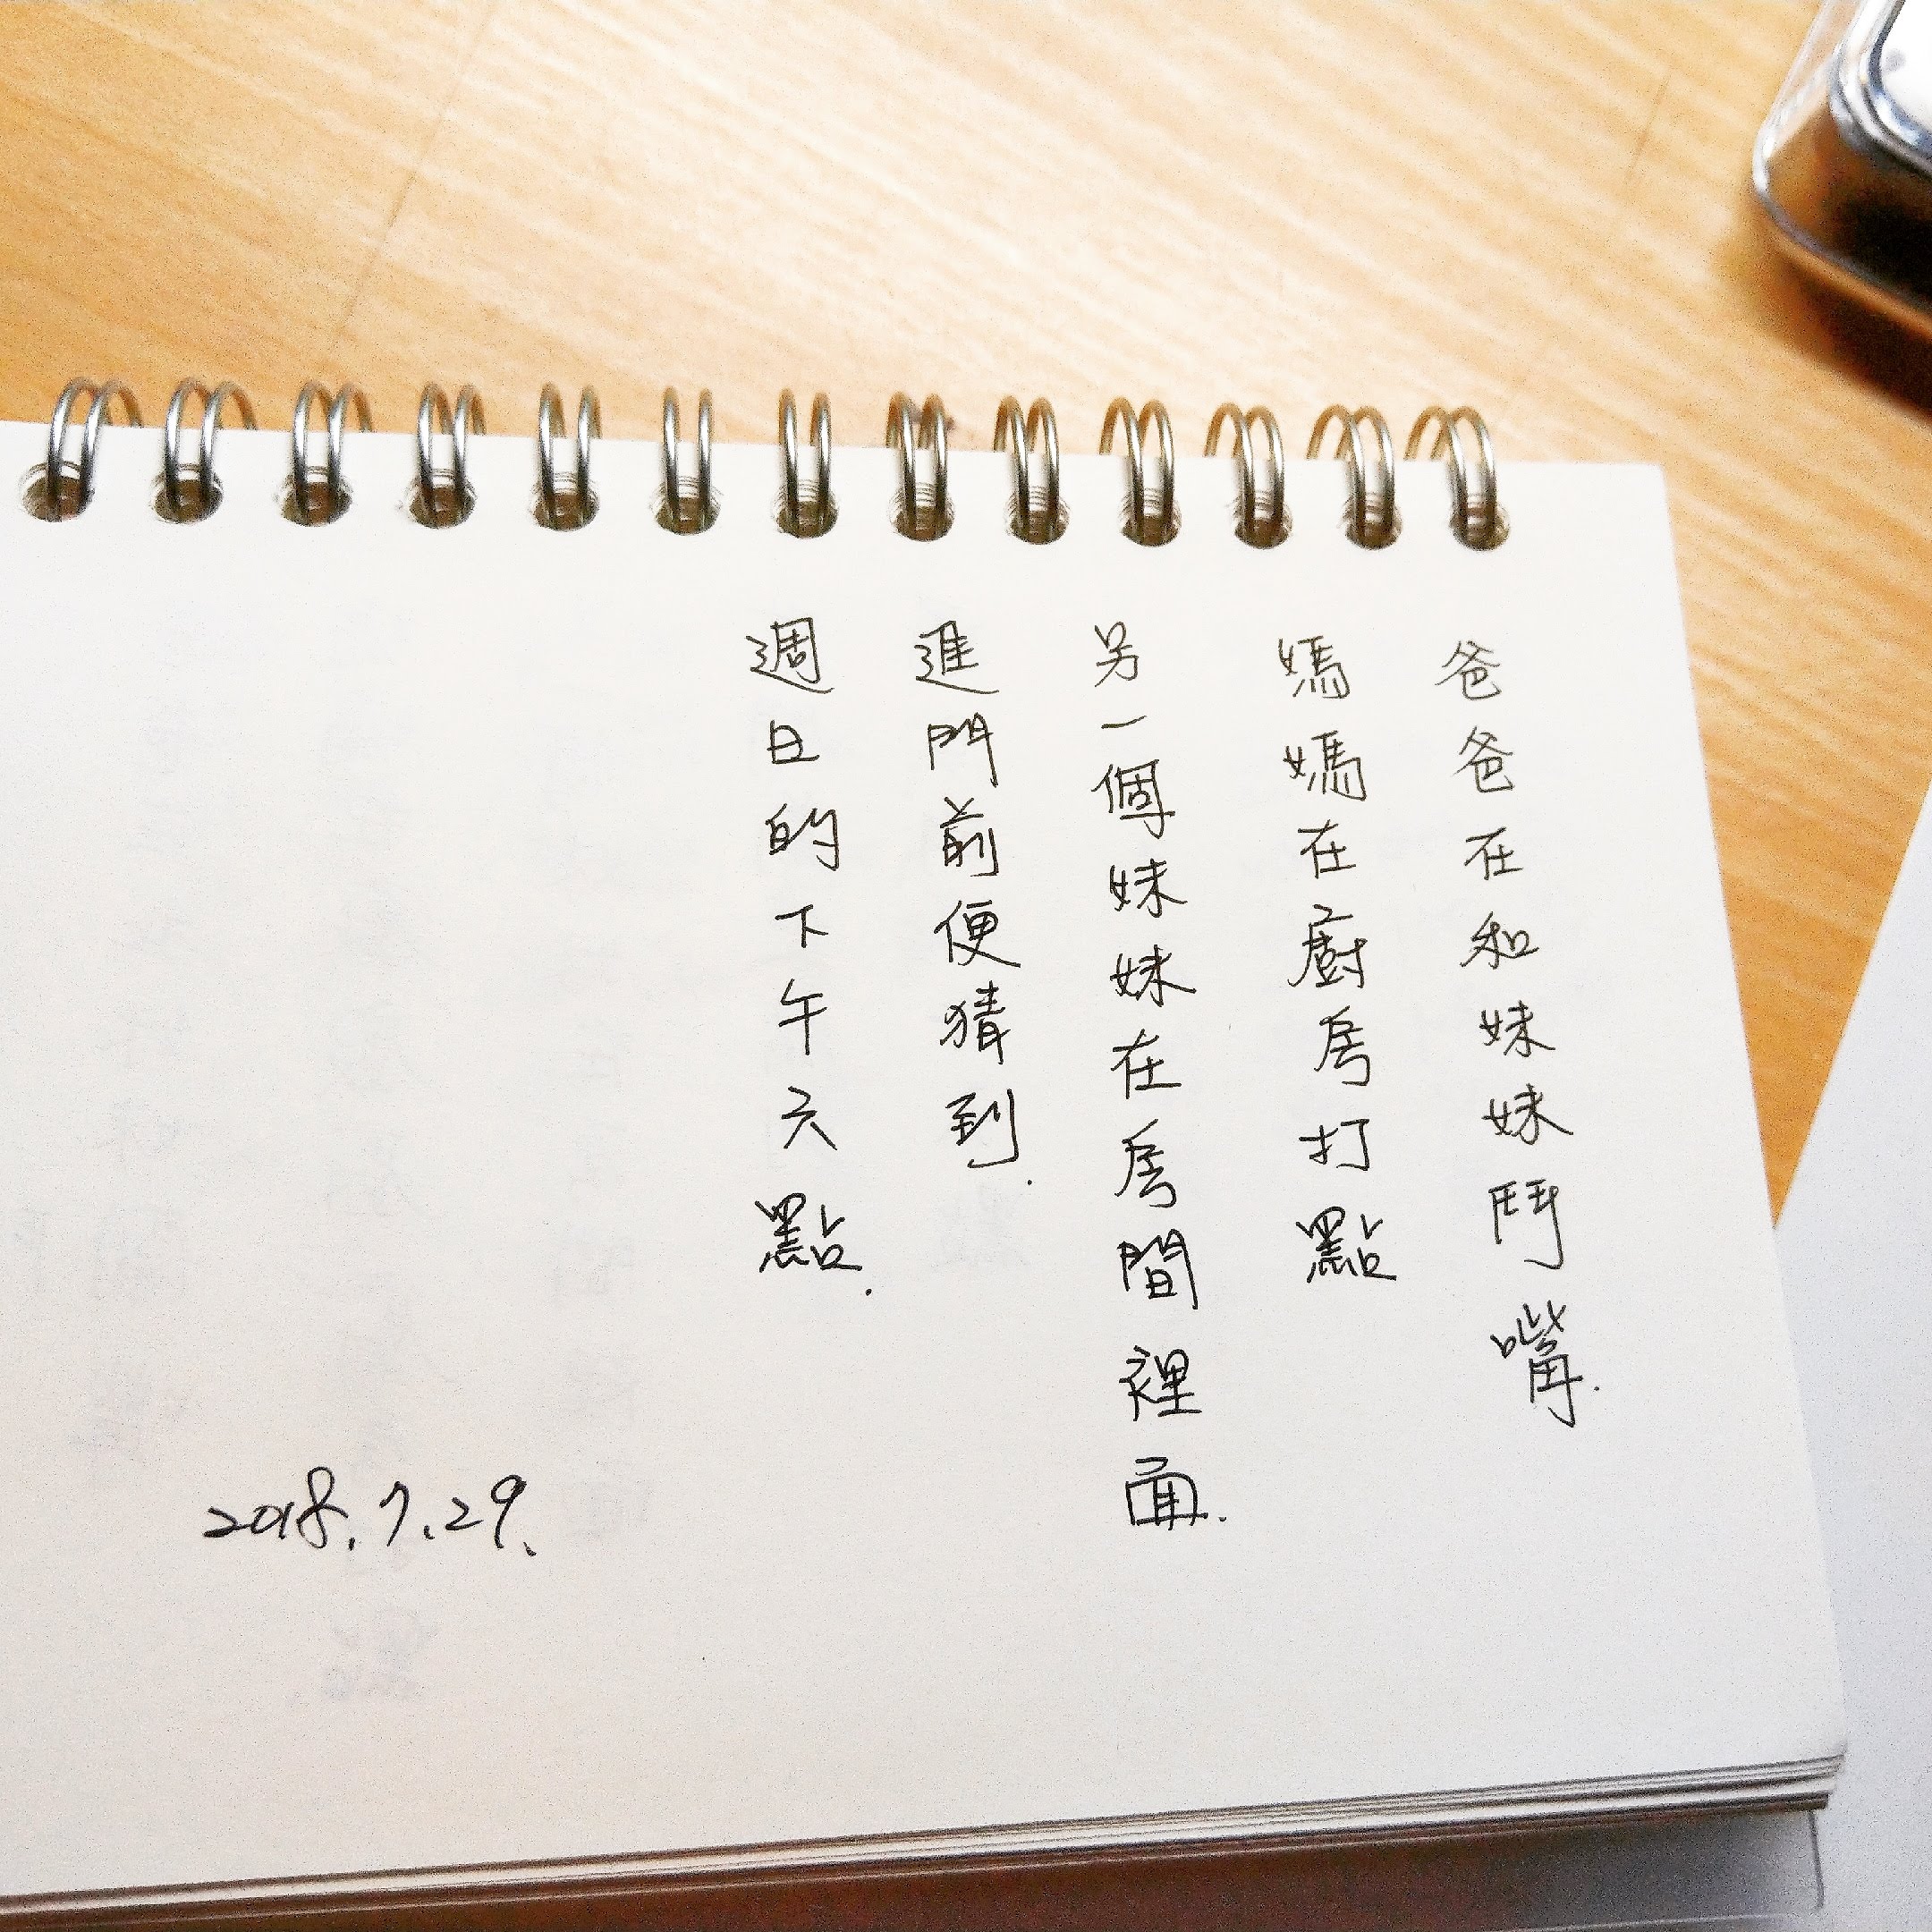 爸爸在和妹妹鬥嘴.
媽媽在廚房打點
另一個妹妹在房間裡面.
進門前便猜到.
週日的下午六點.
2018.7.29.